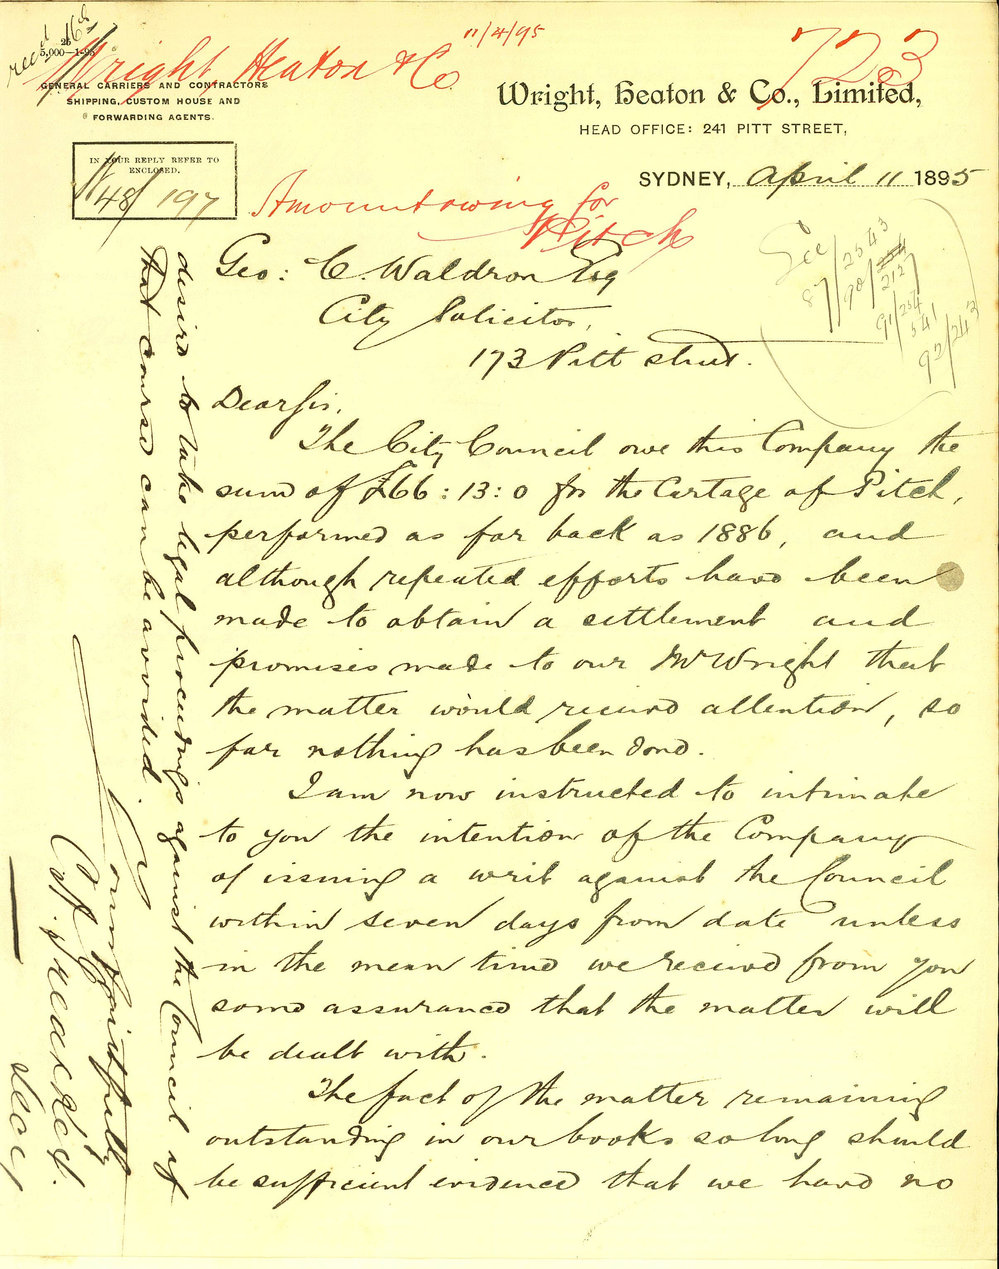 recd 16th
25
5,000—1-95
Wright, Heaton & Co
11/4/95
723
GENERAL CARRIERS AND CONTRACTORS
SHIPPING, CUSTOM HOUSE AND
FORWARDING AGENTS.
Wright, Heaton & Co., Limited,
HEAD OFFICE: 241 PITT STREET,
IN YOUR REPLY REFER TO
ENCLOSED.
48/197
SYDNEY, April 11 1895
Amount owing for
Pitch
See 87/2543
90/2127
91/254
541
92/243
Geo: C. Waldron Esq
City Solicitor,
173 Pitt Street.
Dear Sir,
The City Council owe this Company the
sum of £66:13:0 for the Cartage of Pitch,
performed as far back as 1886, and
although repeated efforts have been
made to obtain a settlement and
promises made to our Mr Wright that
the matter would receive attention, so
far nothing has been done.
I am now instructed to intimate
to you the intention of the Company
of issuing a writ against the Council
within seven days from date unless
in the mean time we receive from you
some assurance that the matter will
be dealt with.
The fact of the matter remaining
outstanding in our books so long should
be sufficient evidence that we have no
desire to take legal proceedings against the Council if
that course can be avoided.
Yours faithfully
Secy